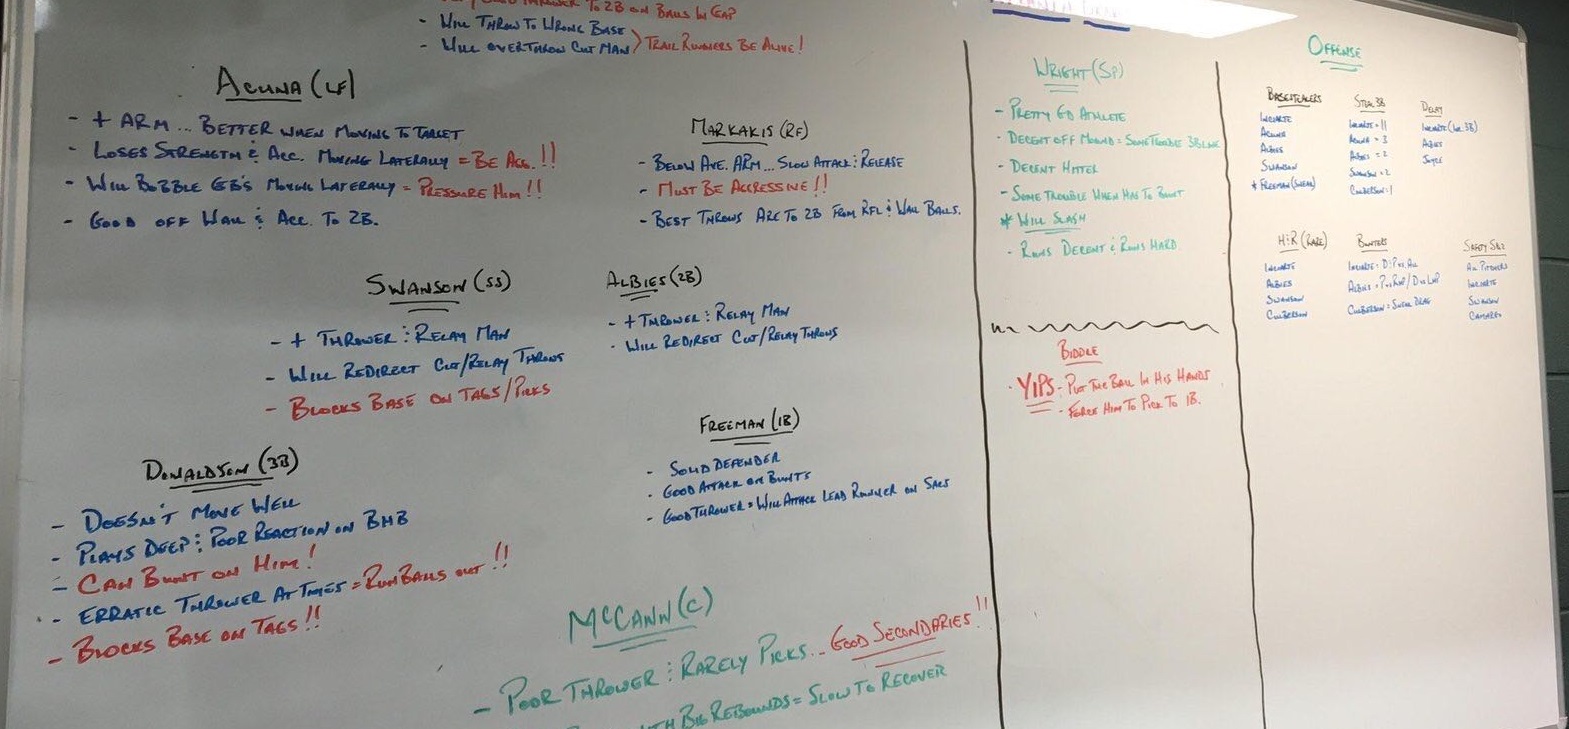 Thrower To 2B on Balls In Gap
- Will Throw To Wrong Base
- Will overthrow Cut Man > Trail Runners Be Alive!
Acuna (LF)
- + Arm... Better when Moving To Target
- Loses Strength & Acc. Moving Laterally = Be Agg.!!
- Will Bobble GB's Moving Laterally = Pressure Him!!
- Good off Wall & Acc. To 2B.
Markakis (RF)
- Below Ave. Arm... Slow Attack & Release
- Must Be Aggressive!!
- Best Throws Are To 2B From RFL & Wall Balls.
Swanson (SS)
- + Thrower & Relay Man
- Will Redirect Cut/Relay Throws
- Blocks Base on Tags/Picks
Albies (2B)
- + Thrower & Relay Man
- Will Redirect Cut/Relay Throws
Donaldson (3B)
- Doesn't Move Well
- Plays Deep & Poor Reaction on BHB
- Can Bunt on Him!
- Erratic Thrower At Times = Run Balls out!!
- Blocks Base on Tags!!
Freeman (1B)
- Solid Defender
- Good Attack on Bunts
- Good Thrower = Will Attack Lead Runner on Sacs
McCann (C)
- Poor Thrower & Rarely Picks... Good Secondaries!!
Big Rebounds = Slow To Recover
Wright (SP)
- Pretty Gd Athlete
- Decent off Mound = Some Trouble 3B Line
- Decent Hitter
- Some Trouble When Has To Bunt
* Will Slash
- Runs Decent & Runs Hard
Biddle
- YIPS - Put The Ball In His Hands
- Force Him To Pick To 1B.
Offense
Basestealers
Inciarte
Acuna
Albies
Swanson
* Freeman (Sneak)
Steal 3B
Inciarte = 11
Acuna = 3
Albies = 2
Swanson = 2
Culberson = 1
Delay
Inciarte (Inc. 3B)
Albies
Joyce
H&R (Rare)
Inciarte
Albies
Swanson
Culberson
Bunters
Inciarte = D & P vs. All
Albies = P vs RHP / D vs LHP
Culberson = Sneak Drag
Safety Sqz
All Pitchers
Inciarte
Swanson
Camargo